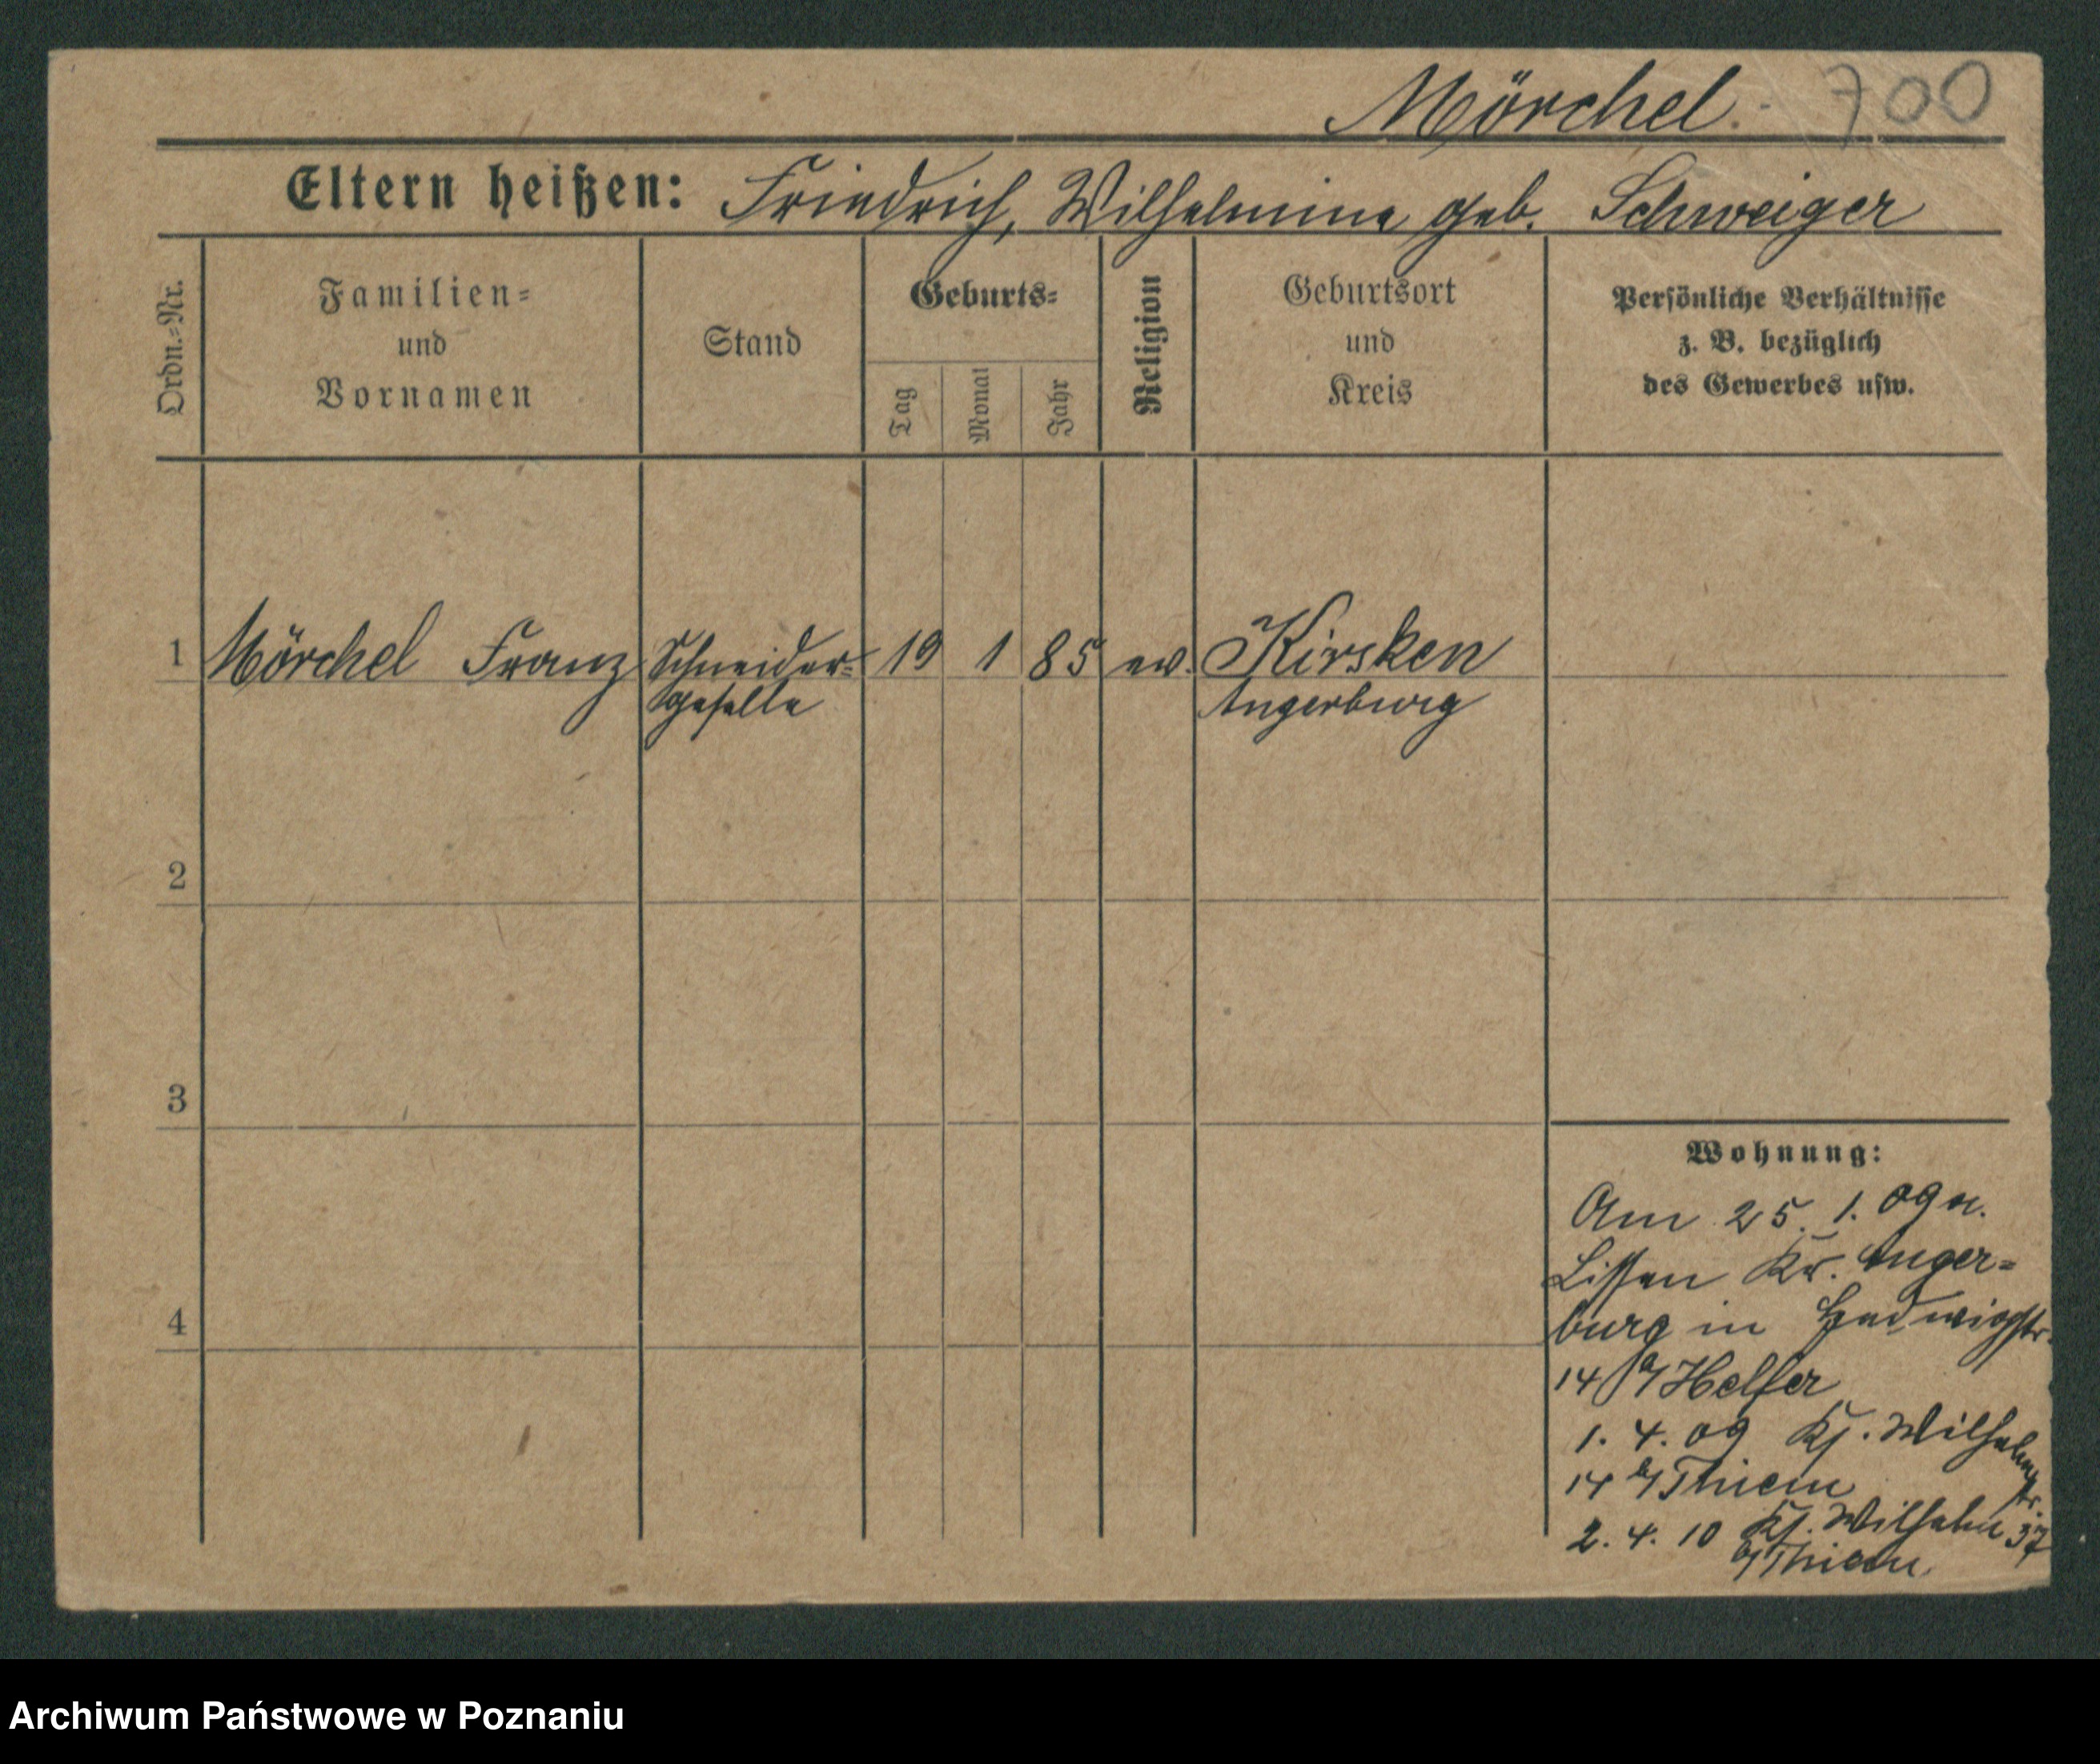 Mörchel. 700
Eltern heißen: Friedrich, Wilhelmine geb. Schweiger
Ordn.-Nr.
Familien-
und
Vornamen
Stand
Geburts-
Tag
Monat
Jahr
Religion
Geburtsort
und
Kreis
Persönliche Verhältnisse
z. B. bezüglich
des Gewerbes usw.
1 Mörchel Franz Schneider- 19 1 85 ev. Kirsken
geselle Angerburg
2
3
4
Wohnung:
Am 25. 1. 09 n.
Lissen Kr. Anger-
burg in Hedwigstr.
14 Helfer
1. 4. 09 Kj. Wilhelmstr.
14 b/ Thiem
2. 4. 10 Kj. Wilhelm 37
b/ Thiem.
Archiwum Państwowe w Poznaniu